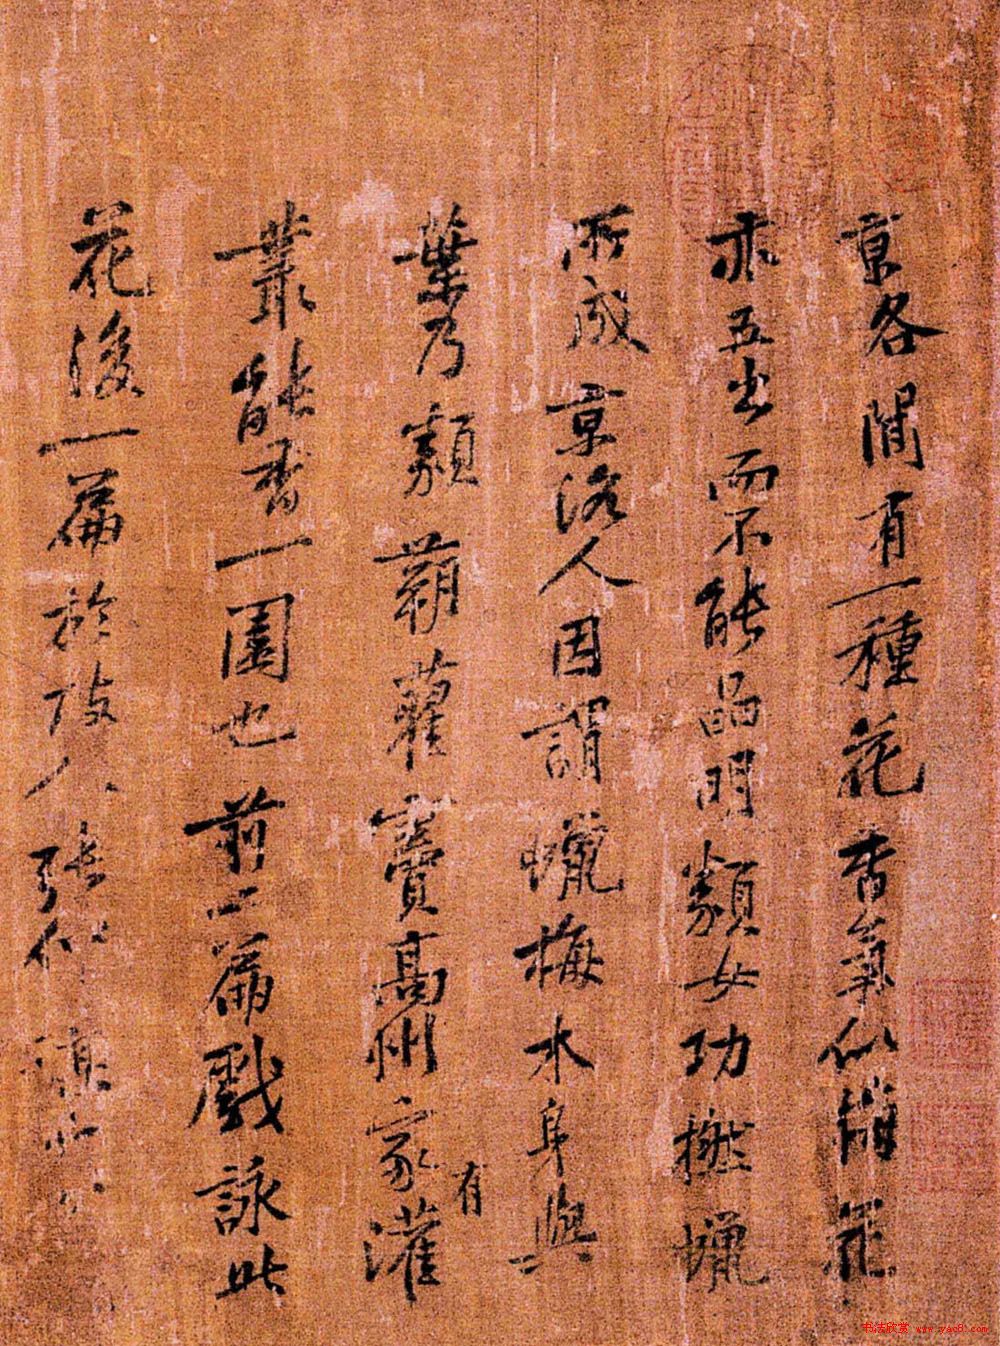 京洛間有一種花香氣似梅花
亦五出而不能晶明類女功撚蠟
所成京洛人因謂蠟梅木身與
葉乃類蒴藋竇高州家有灌
叢能香一園也前二篇戲詠此
花後一篇於故人張仲謨
书法欣赏 www.yac8.com